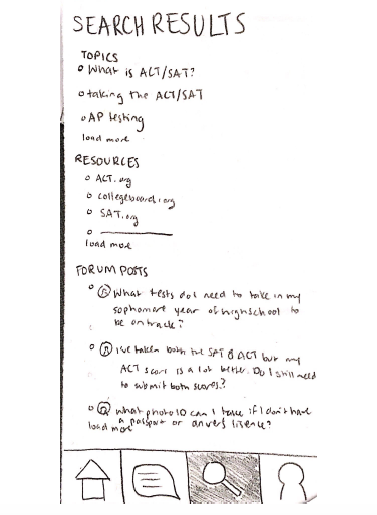 SEARCH RESULTS
TOPICS
What is ACT/SAT?
taking the ACT/SAT
AP testing
load more
RESOURCES
ACT.org
collegeboard.org
SAT.org
load more
FORUM POSTS
Q What tests do I need to take in my
sophomore year of highschool to
be on track?
I've taken both the SAT & ACT but my
ACT score is a lot better. Do I still need
to submit both scores?
Q What photo ID can I take if I don't have
a passport or
load more